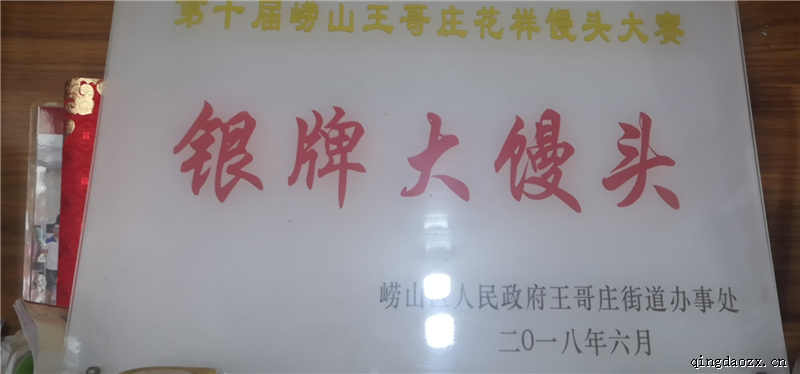 第十届崂山王哥庄花样馒头大赛
银牌大馒头
崂山区人民政府王哥庄街道办事处
二〇一八年六月
qingdaozx.cn